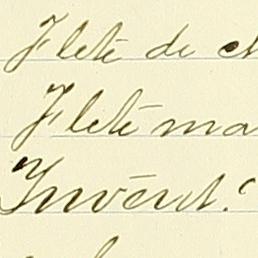 Flete de ch
Flete ma
Invernt.